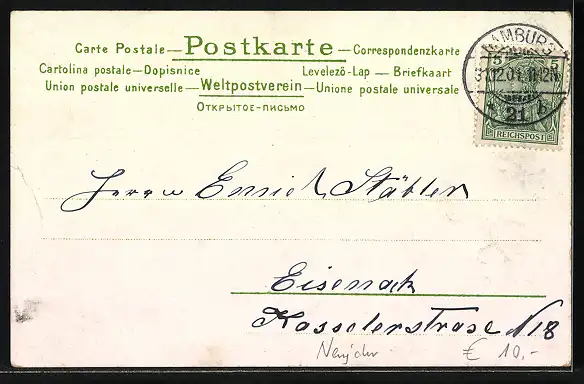 Carte Postale — Postkarte — Correspondenzkarte
Cartolina postale — Dopisnice Levelező-Lap — Briefkaart
Union postale universelle — Weltpostverein — Unione postale universale
ОТКРЫТОЕ-ПИСЬМО
HAMBURG
31.12.01
21
5 5
REICHSPOST
Herrn Stähler
Eisenach
Kasselerstrase N 18
€ 10,-